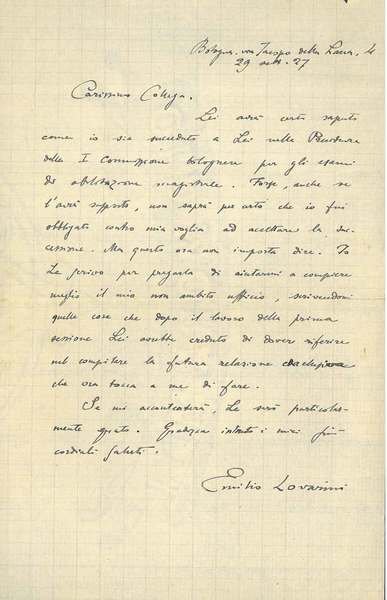 Bologna. via Jacopo della Lana, 4
29 sett. 27
Carissimo Collega.
Lei avrà certo saputo
come io sia succeduto a Lei nella Presidenza
della I Commissione bolognese per gli esami
di abilitazione magistrale. Forse, anche se
l'avrà supposto, non saprà per certo che io fui
obbligato contro mia voglia ad accettare la suc-
cessione. Ma questo ora non importa dire. Io
Le scrivo per pregarla di aiutarmi a compiere
meglio il mio non ambito ufficio, scrivendomi
quelle cose che dopo il lavoro della prima
sessione Lei avrebbe creduto di dover riferire
nel compilare la futura relazione
che ora tocca a me di fare.
Se mi accontenterà, Le sarò particolar-
mente grato. Gradisca intanto i miei più
cordiali saluti.
Emilio Lovarini